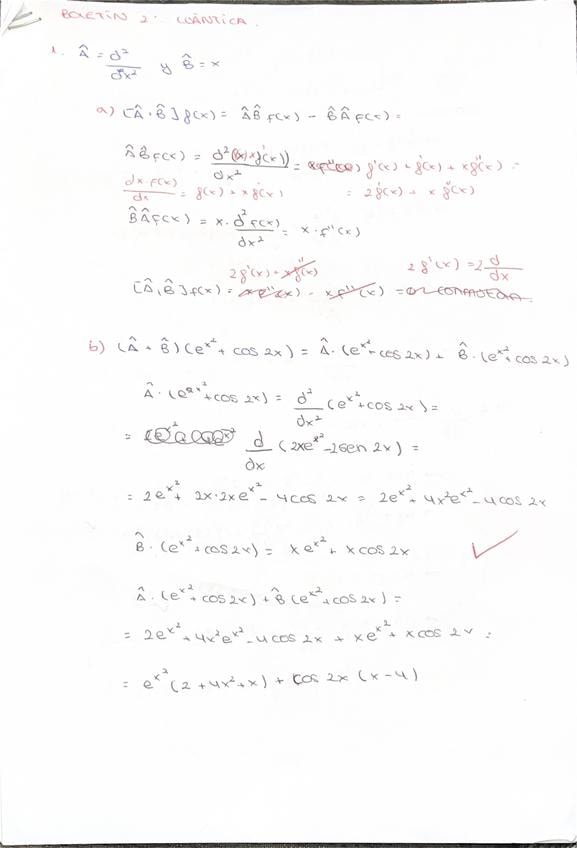 BOLETÍN 2: CUÁNTICA.
1. Â = d²/dx² y B̂ = x
a) [Â, B̂] f(x) = ÂB̂ f(x) - B̂Â f(x) =
ÂB̂ f(x) = d²(x·f(x))/dx² = f'(x) + f'(x) + x f''(x) =
dx·f(x)/dx = f(x) + x f'(x) = 2f'(x) + x f''(x)
B̂Â f(x) = x · d² f(x)/dx² = x · f''(x)
2f'(x) + x f''(x) 2f'(x) = 2 d/dx
[Â, B̂] f(x) = x f''(x) - x f''(x) = 0 → CONMUTAN.
b) (Â + B̂)(e^x² + cos 2x) = Â · (e^x² + cos 2x) + B̂ · (e^x² + cos 2x)
Â · (e^x² + cos 2x) = d²/dx² (e^x² + cos 2x) =
= d/dx (2xe^x² - 2sen 2x) =
= 2e^x² + 2x·2xe^x² - 4cos 2x = 2e^x² + 4x²e^x² - 4cos 2x
B̂ · (e^x² + cos 2x) = xe^x² + x cos 2x ✓
Â · (e^x² + cos 2x) + B̂ (e^x² + cos 2x) =
= 2e^x² + 4x²e^x² - 4cos 2x + xe^x² + x cos 2x =
= e^x² (2 + 4x² + x) + cos 2x (x - 4)